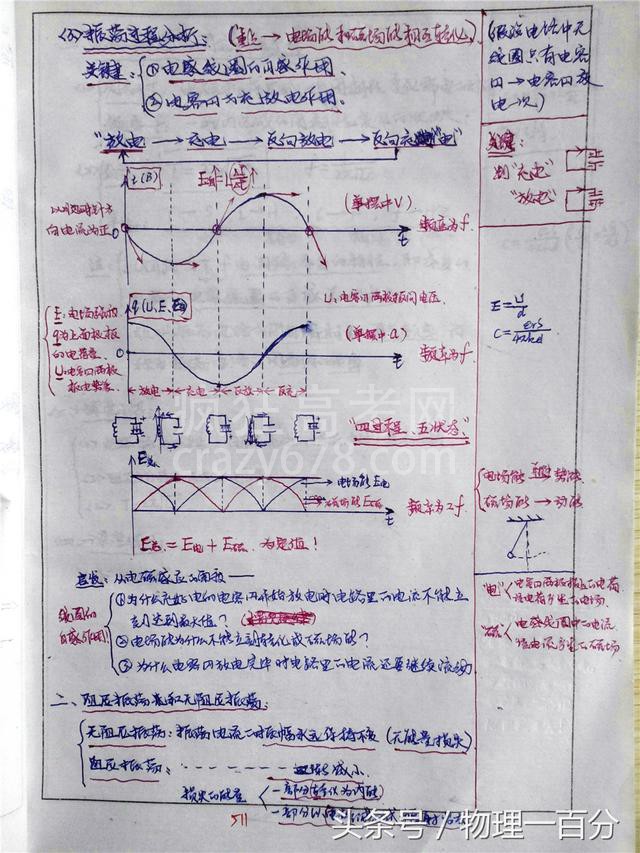 (3) 振荡过程分析: (重点→电场能和磁场能相互转化)
关键: ①电感线圈的自感作用.
②电容的充、放电作用.
(假设电路中无
线圈只有电容
→电容放
电一次)
"放电→充电→反向放电→反向充电"
关键:
判"充电"
"放电"
i(B)
以顺时针方
向电流为正
(单摆中V)
频率为f.
t
q(U、E、
U: 电容两极板间电压.
E: 电场强度
q为上面极板
的电荷量
U: 电容两极
板电势差
(单摆中a)
频率为f.
t
放电 充电 反放 反充
E=U/d
C=εrS/4πkd
疯狂高考网
crazy678.com
"四过程、五状态."
E总
电场能E电
磁场能E磁
频率为2f.
t
E总=E电+E磁 为定值!
电场能→势能
磁场能→动能
意: 从电磁感应的角度——
线圈的
自感作用
①为什么充好电的电容开始放电时电路里的电流不能立
刻达到最大值?
②电场能为什么不能立刻转化成磁场能?
③为什么电容放电完毕时电路里的电流还要继续流动
"电" 电容两极板上的电荷
该电荷产生的电场.
"磁" 电感线圈中的电流
该电流产生的磁场
二、阻尼振荡和无阻尼振荡:
无阻尼振荡: 振荡电流的振幅永远保持不变 (无能量损失)
阻尼振荡: 逐渐减小.
损失的能量 一部分转化为内能
一部分以
511
头条号/物理一百分